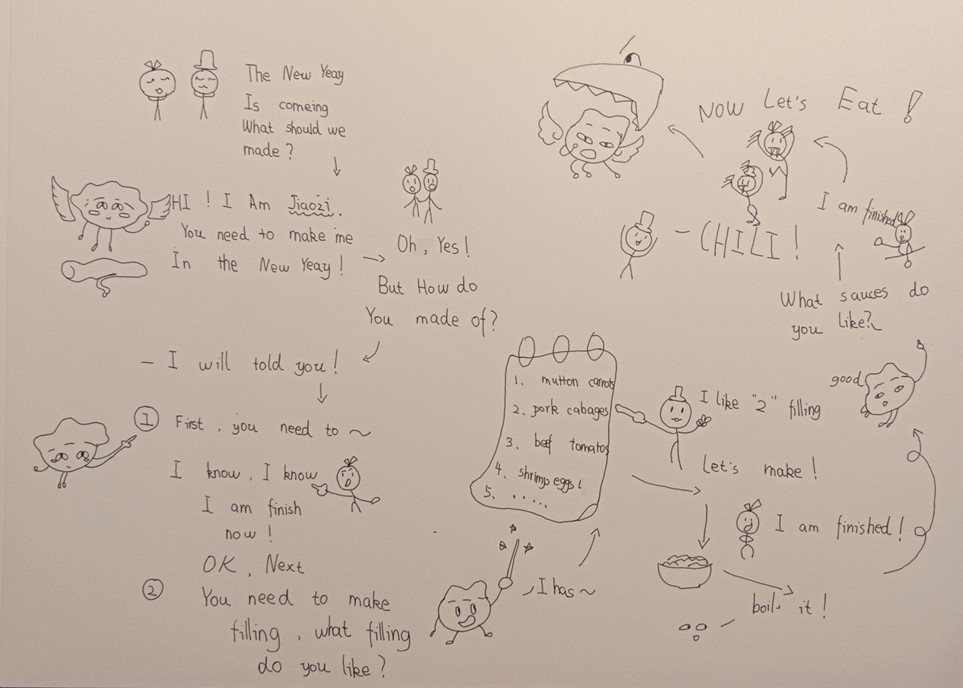 The New Yeay
Is comeing
What should we
made ?
HI ! I Am Jiaozi.
You need to make me
In the New Yeay !
Oh, Yes !
But How do
You made of?
- I will told you !
① First, you need to ~
I know, I know
I am finish
now !
OK, Next
② You need to make
filling, what filling
do you like ?
I has ~
1. mutton carrots
2. pork cabages
3. beef tomatos
4. shrimp eggs
5. .....
I like "2" filling
Let's make !
I am finished !
boil it !
good
What sauces do
you like?
- CHILI !
I am finished
Now Let's Eat !